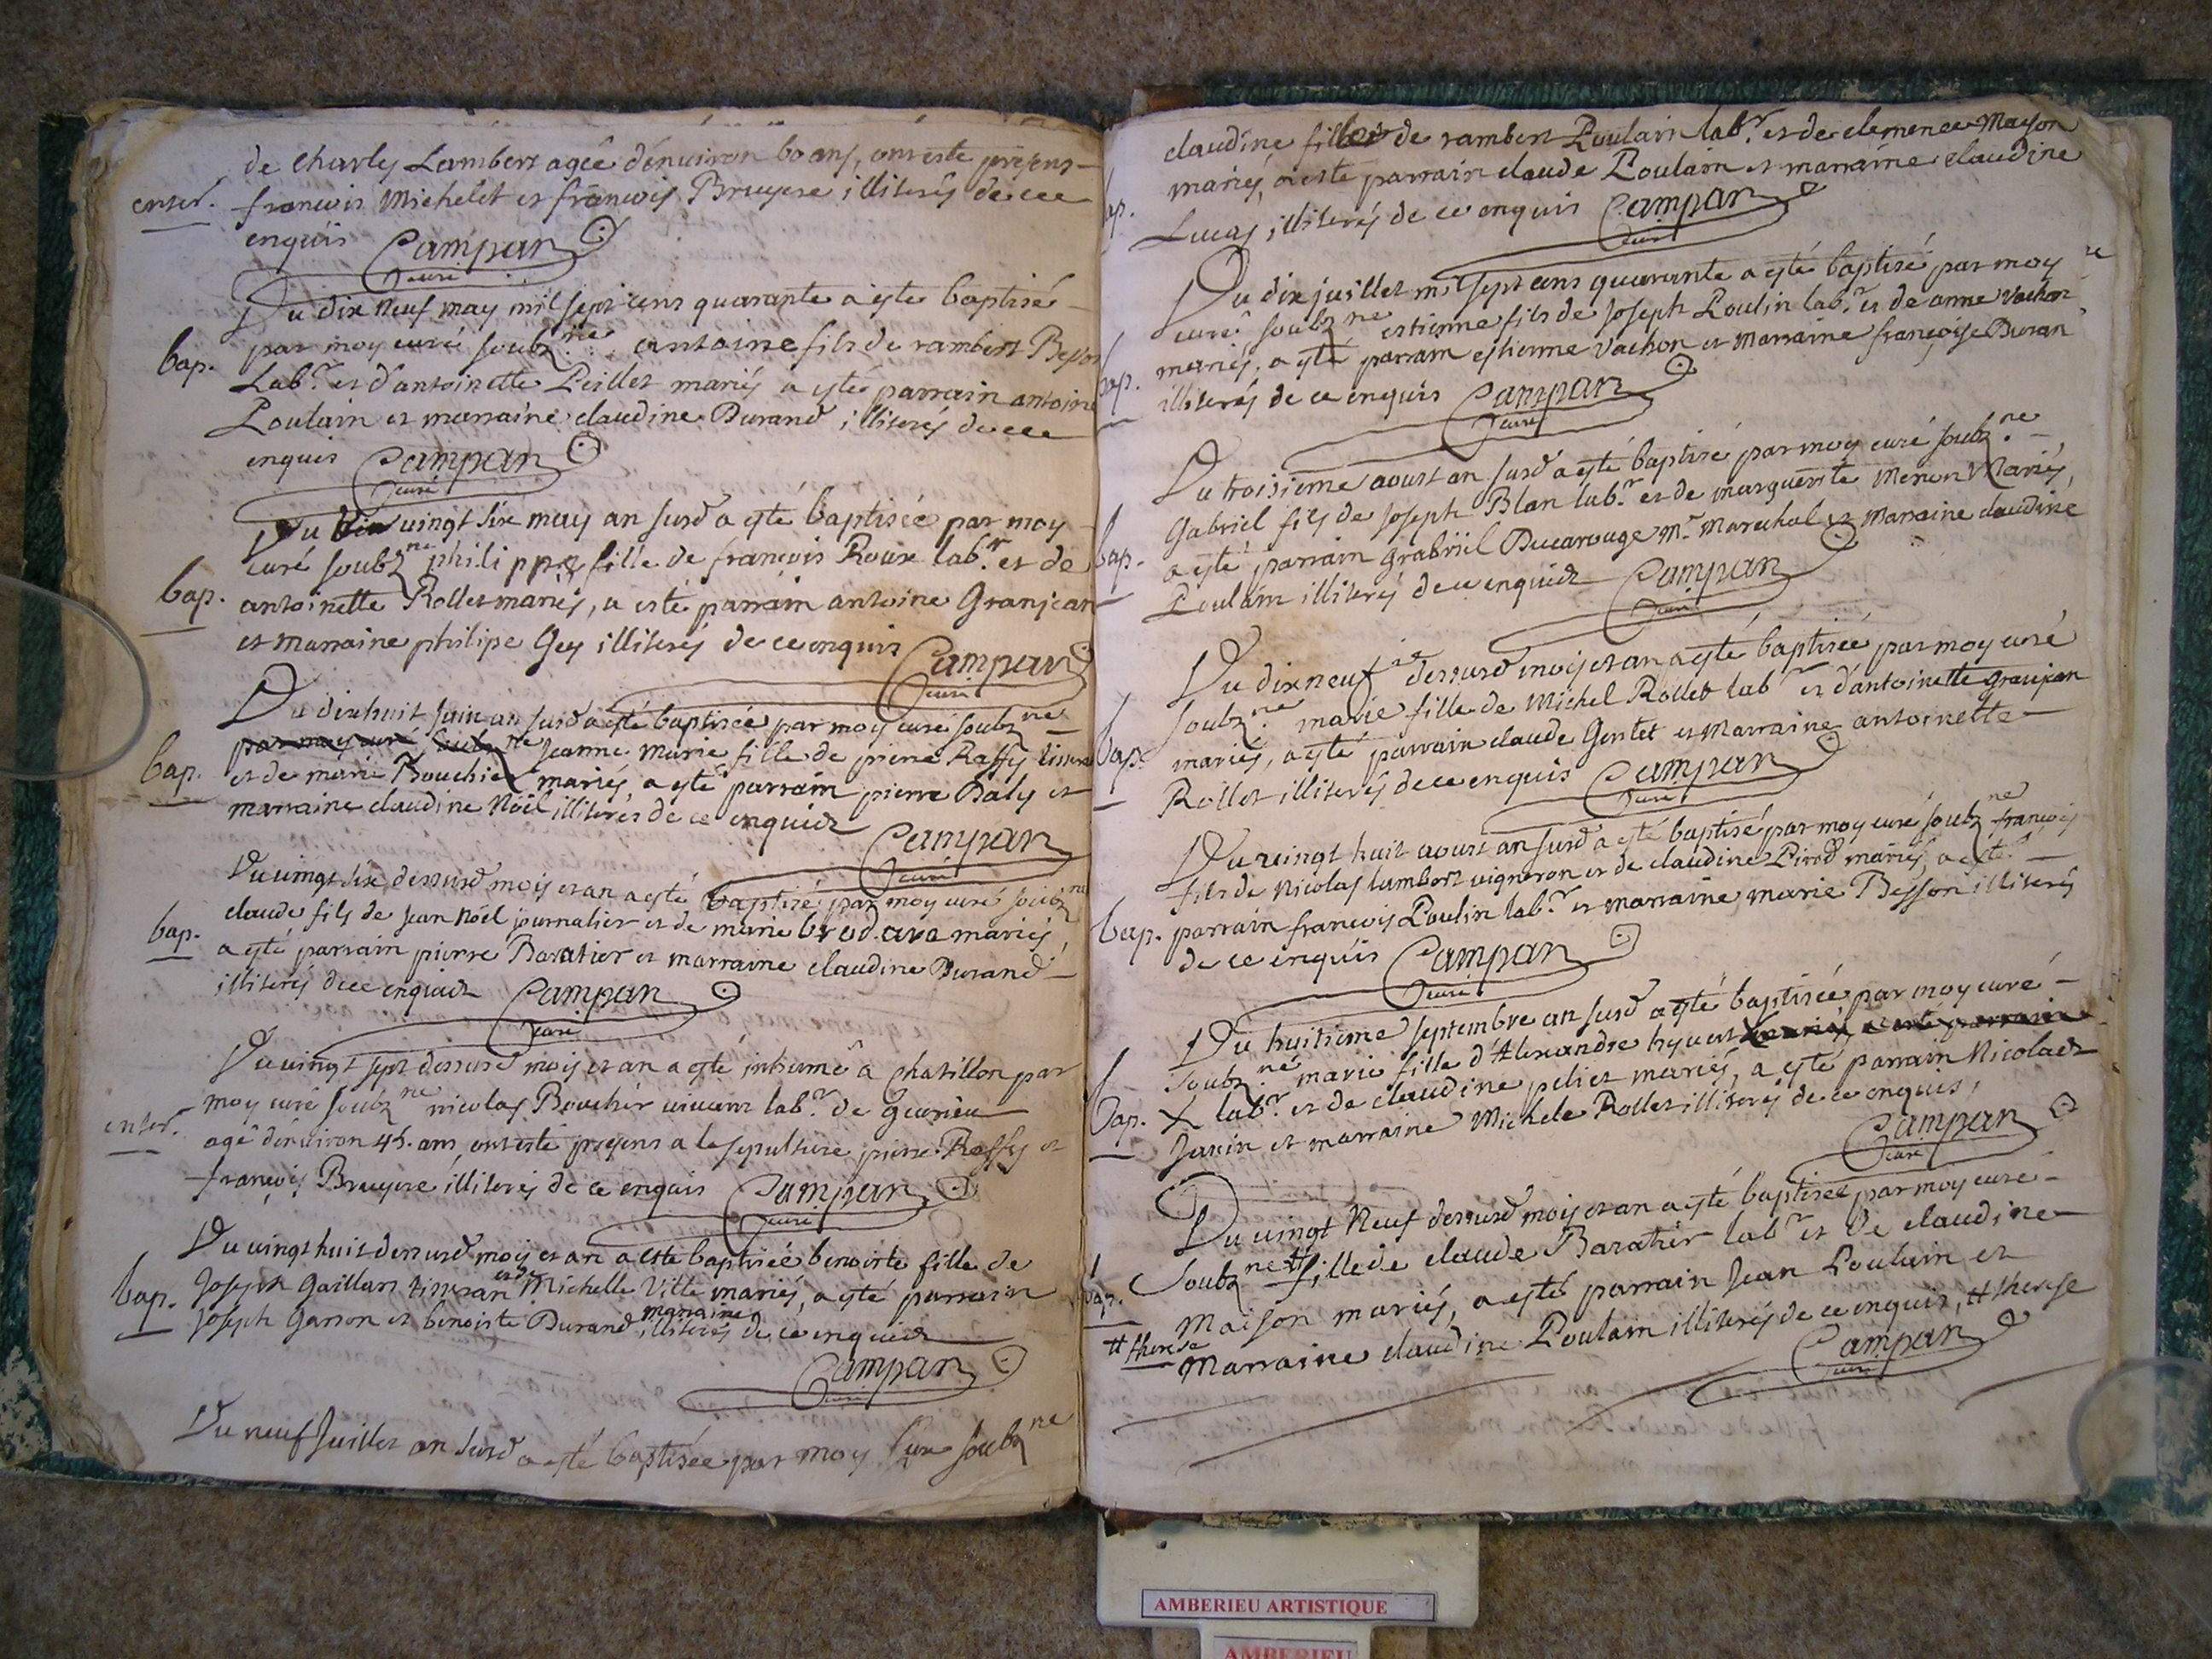 de Charles Lambert agée d'énuiron 60 ans, ont esté présens
enter. francois Michelet et francois Bruyere illiterés de ce
enquis Campan
curé
Du dix neuf may mil sept cens quarante a esté baptisé
bap. par moy curé soubz.ne antoine fils de rambert Besson
Lab.r et d'antoinette Peillet mariés a esté parrain antoine
Poulain et marraine claudine Durand illiterés de ce
enquis Campan
curé
Du vingt six may an susd a esté baptisée par moy
curé soubz.ne philippe fille de francois Roux lab.r et de
bap. antoinette Rollet mariés, a esté parrain antoine Granjean
et marraine philipe Gey illiterés de ce enquis
Campan
curé
Du dixhuit Juin an susd a esté baptisée par moy curé soubz.ne
par moy curé soubz.ne Jeanne Marie fille de pierre Raffy tisseran
bap. et de marie Bouchier mariés, a esté parrain pierre Baly et
marraine claudine Nöel illiterés de ce enquidz
Campan
curé
Du uingt six dessusd mois et an a esté baptisé par moy curé soubz.ne
claude fils de Jean Nöel journalier et de marie brodara mariés,
bap. a esté parrain pierre Baratier et marraine claudine Durand
illiterés de ce enquidz Campan
curé
Du uingt sept dessusd mois et an a esté inhumé a Chatillon par
moy curé soubz.ne nicolas Bouchér uiuant lab.r de
enter. agé d'énuiron 45. ans, ont esté presens a la sepulture pierre Raffy et
francois Bruyere illiterés de ce enquis Campan
curé
Du uingt huit dessusd mois et an a esté baptisée benoite fille de
bap. Joseph Gaillart tisseran et de Michelle Ville mariés, a esté parrain
Joseph Garson et benoite Durand marraine illiterés de ce enquidz
Campan
curé
Du neuf Juillet an susd a esté baptisée par moy Curé soubz.ne
claudine fille de rambert Poulain lab.r et de clemence Mayson
mariés, a esté parrain claude Poulain et marraine claudine
bap. Lucas illiterés de ce enquis Campan
curé
Du dix juillet mil sept cens quarante a esté baptisé par moy
curé soubz.ne estienne fils de Joseph Poulin lab.r et de anne Vachon
bap. mariés, a esté parrain estienne Vachon et Marraine françoise Duran
illiterés de ce enquis Campan
curé
Du troisieme aoust an susd a esté baptisé par moy curé soubz.ne
Gabriel fils de Joseph Blan lab.r et de marguerite Menon Mariés,
bap. a esté parrain grabriel Ducarouge M.e Marechal et Marraine claudine
Poulain illiterés de ce enquidz Campan
curé
Du dixneuf.me dessusd mois et an a esté baptisée par moy curé
soubz.ne marie fille de Michel Rollet lab.r et d'antoinette granjean
bap. mariés, a esté parrain claude Gentet et Marraine antoinette
Rollet illiterés de ce enquis Campan
curé
Du uingt huit aoust an susd a esté baptisé par moy curé soubz.ne francois
fils de Nicolas Lambert uigneron et de claudine Pirod mariés, a esté
bap. parrain francois Poulin lab.r et marraine marie Besson illiterés
de ce enquis Campan
curé
Du huitieme septembre an susd a esté baptisée par moy curé
soubz.né marie fille d'Alexandre hyuert mariés, a esté parrain
bap. X lab.r et de claudine peliet mariés, a esté parrain Nicoladz
Janin et marraine Michele Rollet illiterés de ce enquis,
Campan
curé
Du uingt Neuf dessusd mois et an a esté baptisée par moy curé
soubz.ne # fille de claude Baratier lab.r et de claudine
bap. Maison mariés, a esté parrain Jean Poulain et
# therese Marraine claudine Poulain illiterés de ce enquis, # therese
Campan
curé
AMBERIEU ARTISTIQUE
AMBERIEU